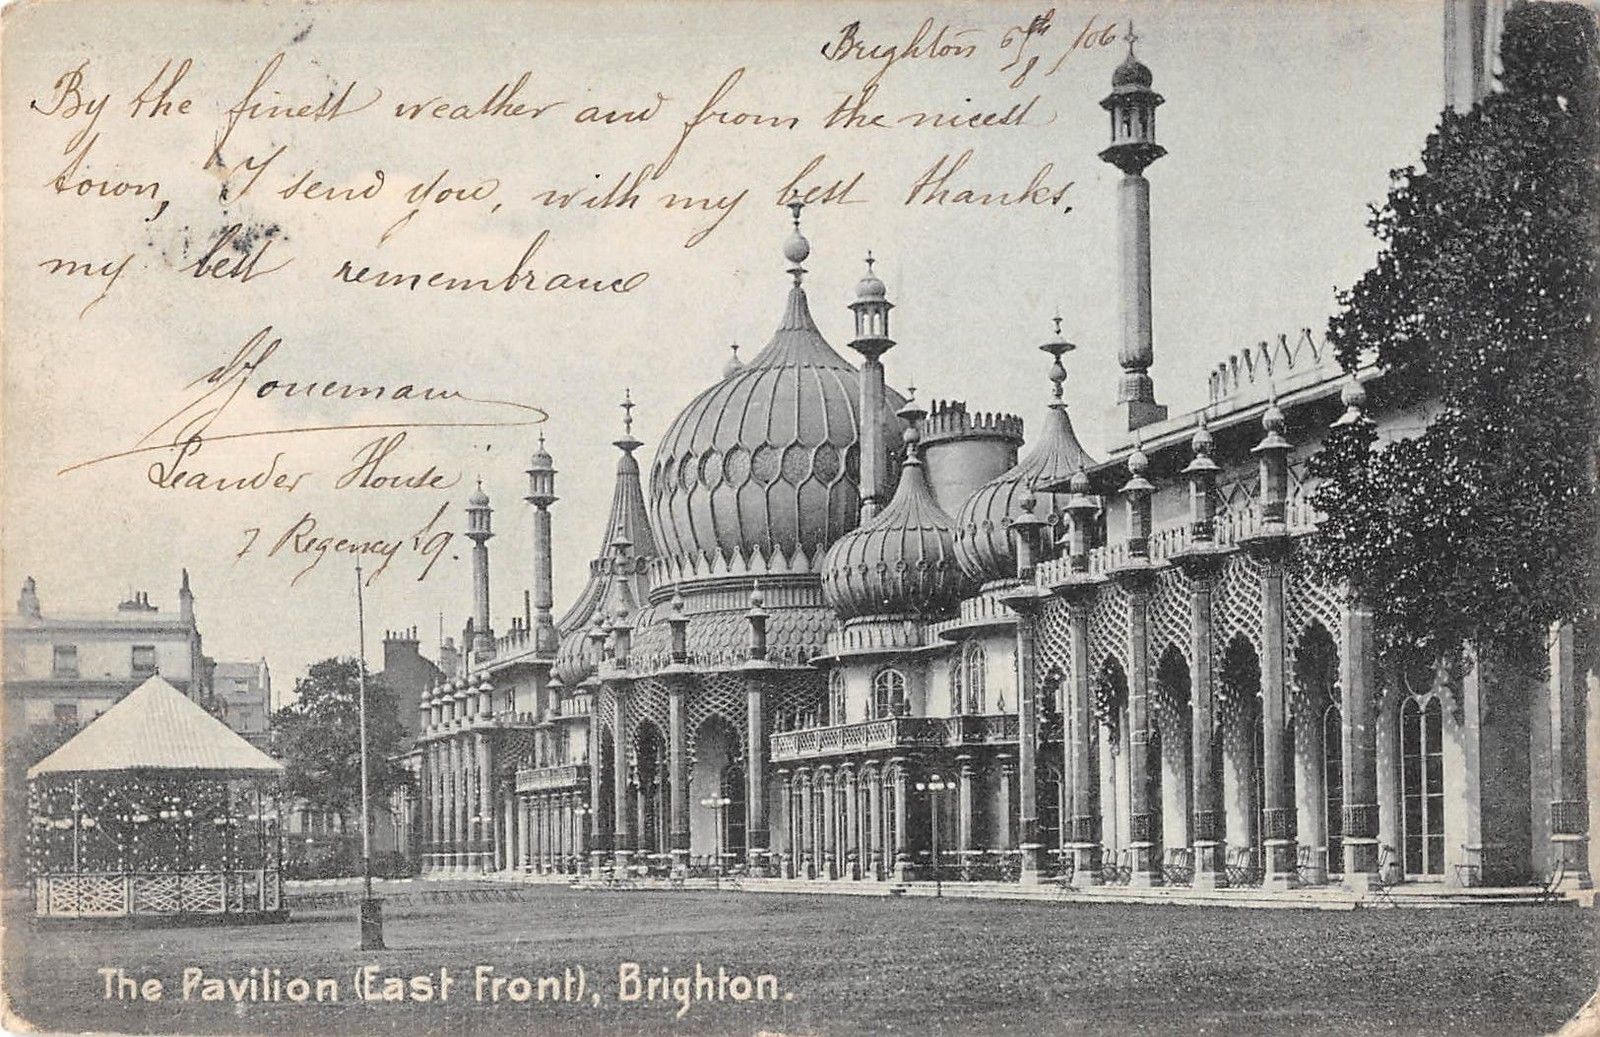 Brighton 5th/8 /06
By the finest weather and from the nicest
town, I send you, with my best thanks,
my best remembrance
Leander House
7 Regency Sq.
The Pavilion (East Front), Brighton.